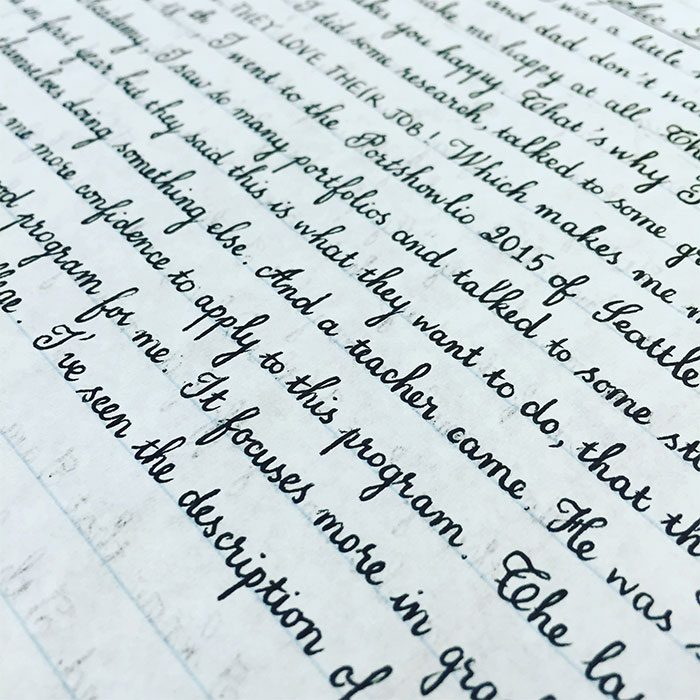 was a little
and dad don't wa
me happy at all. Th
you happy. That's why I
I did some research, talked to some gr
THEY LOVE THEIR JOB! Which makes me
I went to the Portshowlio 2015 of Seattle
Academy. I saw so many portfolios and talked to some st
in first year but they said this is what they want to do, that th
themselves doing something else. And a teacher came. He was
me more confidence to apply to this program. The la
program for me. It focuses more in gra
I've seen the description of